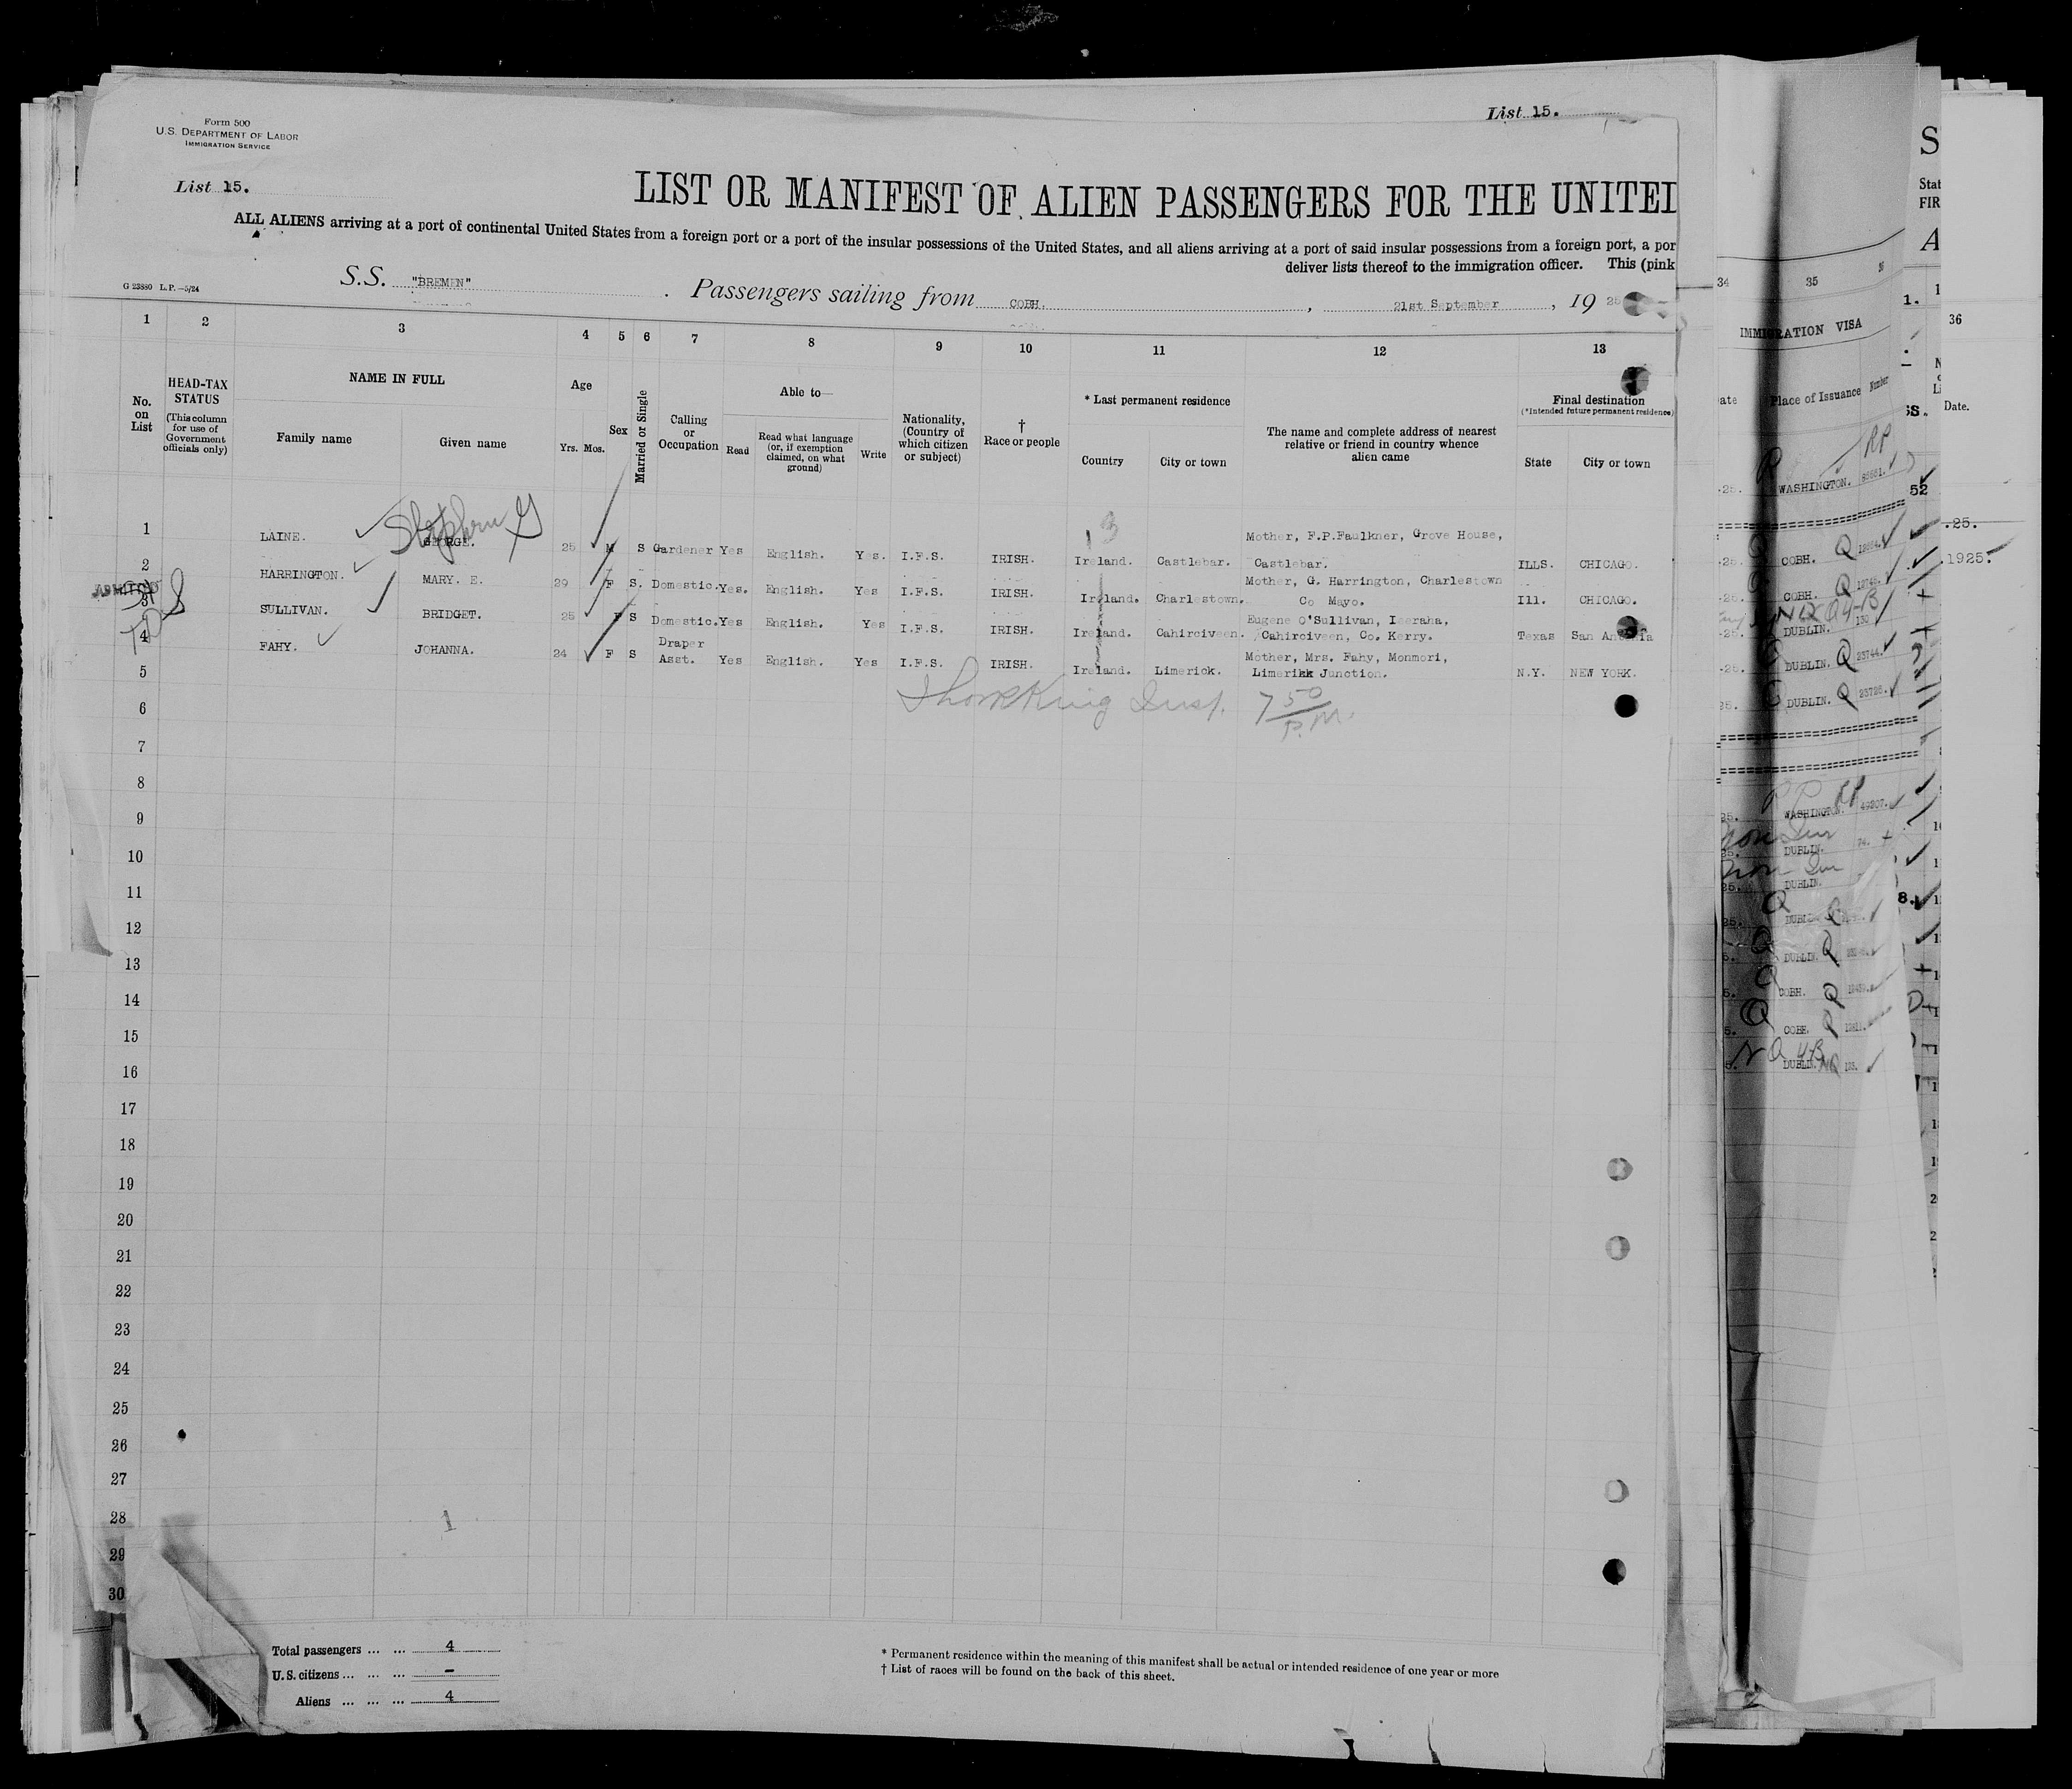 Form 500
U.S. DEPARTMENT OF LABOR
IMMIGRATION SERVICE
List 15.
List 15.
LIST OR MANIFEST OF ALIEN PASSENGERS FOR THE UNITED
ALL ALIENS arriving at a port of continental United States from a foreign port or a port of the insular possessions of the United States, and all aliens arriving at a port of said insular possessions from a foreign port, a por
deliver lists thereof to the immigration officer. This (pink
G 23880 L.P.—5/24
S.S. "BREMEN" . Passengers sailing from COBH. , 21st September , 19 25
1 2 3 4 5 6 7 8 9 10 11 12 13
No. on List
HEAD-TAX STATUS
(This column for use of Government officials only)
NAME IN FULL
Family name
Given name
Age
Yrs. Mos.
Sex
Married or Single
Calling or Occupation
Able to—
Read
Read what language (or, if exemption claimed, on what ground)
Write
Nationality, (Country of which citizen or subject)
†
Race or people
* Last permanent residence
Country
City or town
The name and complete address of nearest relative or friend in country whence alien came
Final destination
(*Intended future permanent residence)
State
City or town
Stephen G
1 LAINE. GEORGE. 25 M S Gardener Yes English. Yes. I.F.S. IRISH. Ireland. Castlebar. Mother, F.P.Faulkner, Grove House,
Castlebar. ILLS. CHICAGO.
2 HARRINGTON. MARY. E. 29 F S. Domestic. Yes. English. Yes I.F.S. IRISH. Ireland. Charlestown. Mother, G. Harrington, Charlestown
Co Mayo. Ill. CHICAGO.
ADMITTED
3 SULLIVAN. BRIDGET. 25 F S Domestic. Yes English. Yes I.F.S. IRISH. Ireland. Cahirciveen. Eugene O'Sullivan, Iseraha,
Cahirciveen, Co. Kerry. Texas San Antonia
4 FAHY. JOHANNA. 24 F S Draper Asst. Yes English. Yes I.F.S. IRISH. Ireland. Limerick. Mother, Mrs. Fahy, Monmori,
Limerikk Junction. N.Y. NEW YORK.
5
6 Insp. 7 50 P.M.
7
8
9
10
11
12
13
14
15
16
17
18
19
20
21
22
23
24
25
26
27
28 1
29
30
Total passengers ... ... 4
U.S. citizens ... ... ... –
Aliens ... ... ... 4
* Permanent residence within the meaning of this manifest shall be actual or intended residence of one year or more
† List of races will be found on the back of this sheet.
34 35 36
IMMIGRATION VISA
ate Place of Issuance Number
RP
WASHINGTON.
COBH. Q
COBH. Q
DUBLIN. 130
DUBLIN. Q 23744.
DUBLIN. Q 23726.
RP
WASHINGTON. 49207.
DUBLIN. 74.
DUBLIN.
Q
DUBLIN. Q
COBH. Q
COBH. Q
DUBLIN. NQ
S
Stat
FIR
A
36
Date.
.25.
1925.